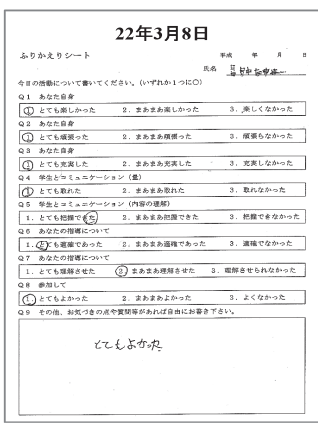 22年3月8日
ふりかえりシート
平成 年 月 日
氏名
今日の活動について書いてください。(いずれか1つに○)
Q1 あなた自身
1. とても楽しかった 2. まあまあ楽しかった 3. 楽しくなかった
Q2 あなた自身
1. とても頑張った 2. まあまあ頑張った 3. 頑張らなかった
Q3 あなた自身
1. とても充実した 2. まあまあ充実した 3. 充実しなかった
Q4 学生とコミュニケーション(量)
1. とても取れた 2. まあまあ取れた 3. 取れなかった
Q5 学生とコミュニケーション(内容の理解)
1. とても把握できた 2. まあまあ把握できた 3. 把握できなかった
Q6 あなたの指導について
1. とても適確であった 2. まあまあ適確であった 3. 適確でなかった
Q7 あなたの指導について
1. とても理解させた 2. まあまあ理解させた 3. 理解させられなかった
Q8 参加して
1. とてもよかった 2. まあまあよかった 3. よくなかった
Q9 その他、お気づきの点や質問等があれば自由にお書き下さい。
とてもよかった